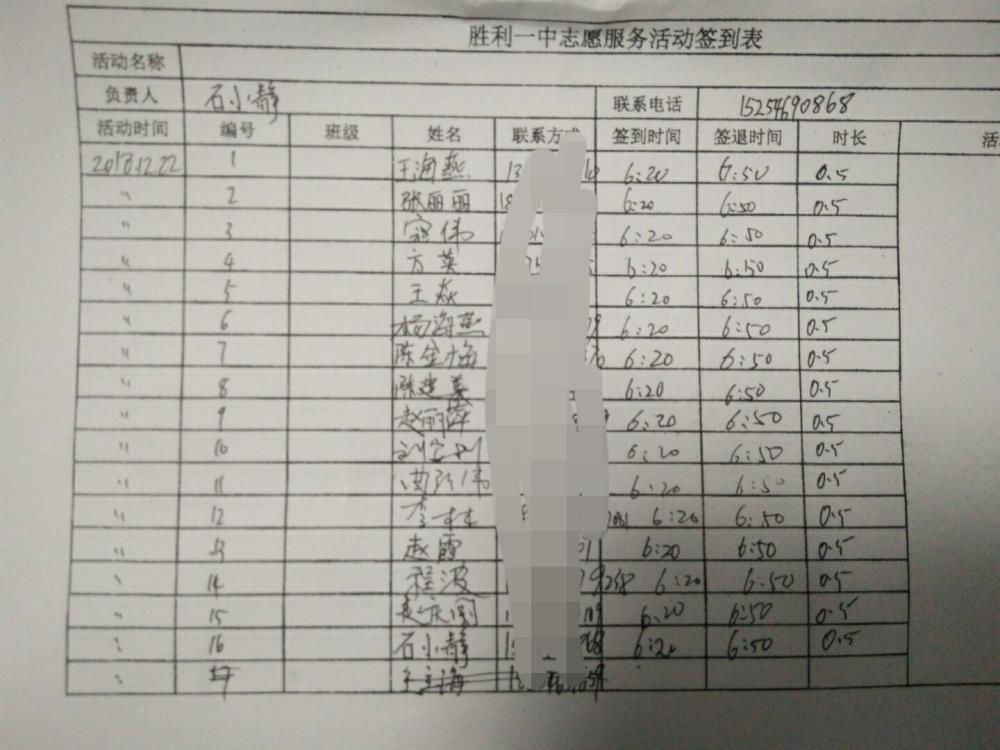 胜利一中志愿服务活动签到表
活动名称
负责人 石小静 联系电话 15254690868
活动时间 编号 班级 姓名 联系方式 签到时间 签退时间 时长 活
2018.12.22 1 王海燕 13 6:20 6:50 0.5
" 2 张丽丽 18 6:20 6:50 0.5
" 3 伟 6:20 6:50 0.5
" 4 方英 6:20 6:50 0.5
" 5 王焱 6:20 6:50 0.5
" 6 杨海燕 6:20 6:50 0.5
" 7 陈金梅 6:20 6:50 0.5
" 8 陈建美 6:20 6:50 0.5
" 9 赵丽萍 6:20 6:50 0.5
" 10 6:20 6:50 0.5
" 11 6:20 6:50 0.5
" 12 李林 6:20 6:50 0.5
" 13 赵霞 6:20 6:50 0.5
" 14 程波 6:20 6:50 0.5
" 15 6:20 6:50 0.5
" 16 石小静 68 6:20 6:50 0.5
" 17